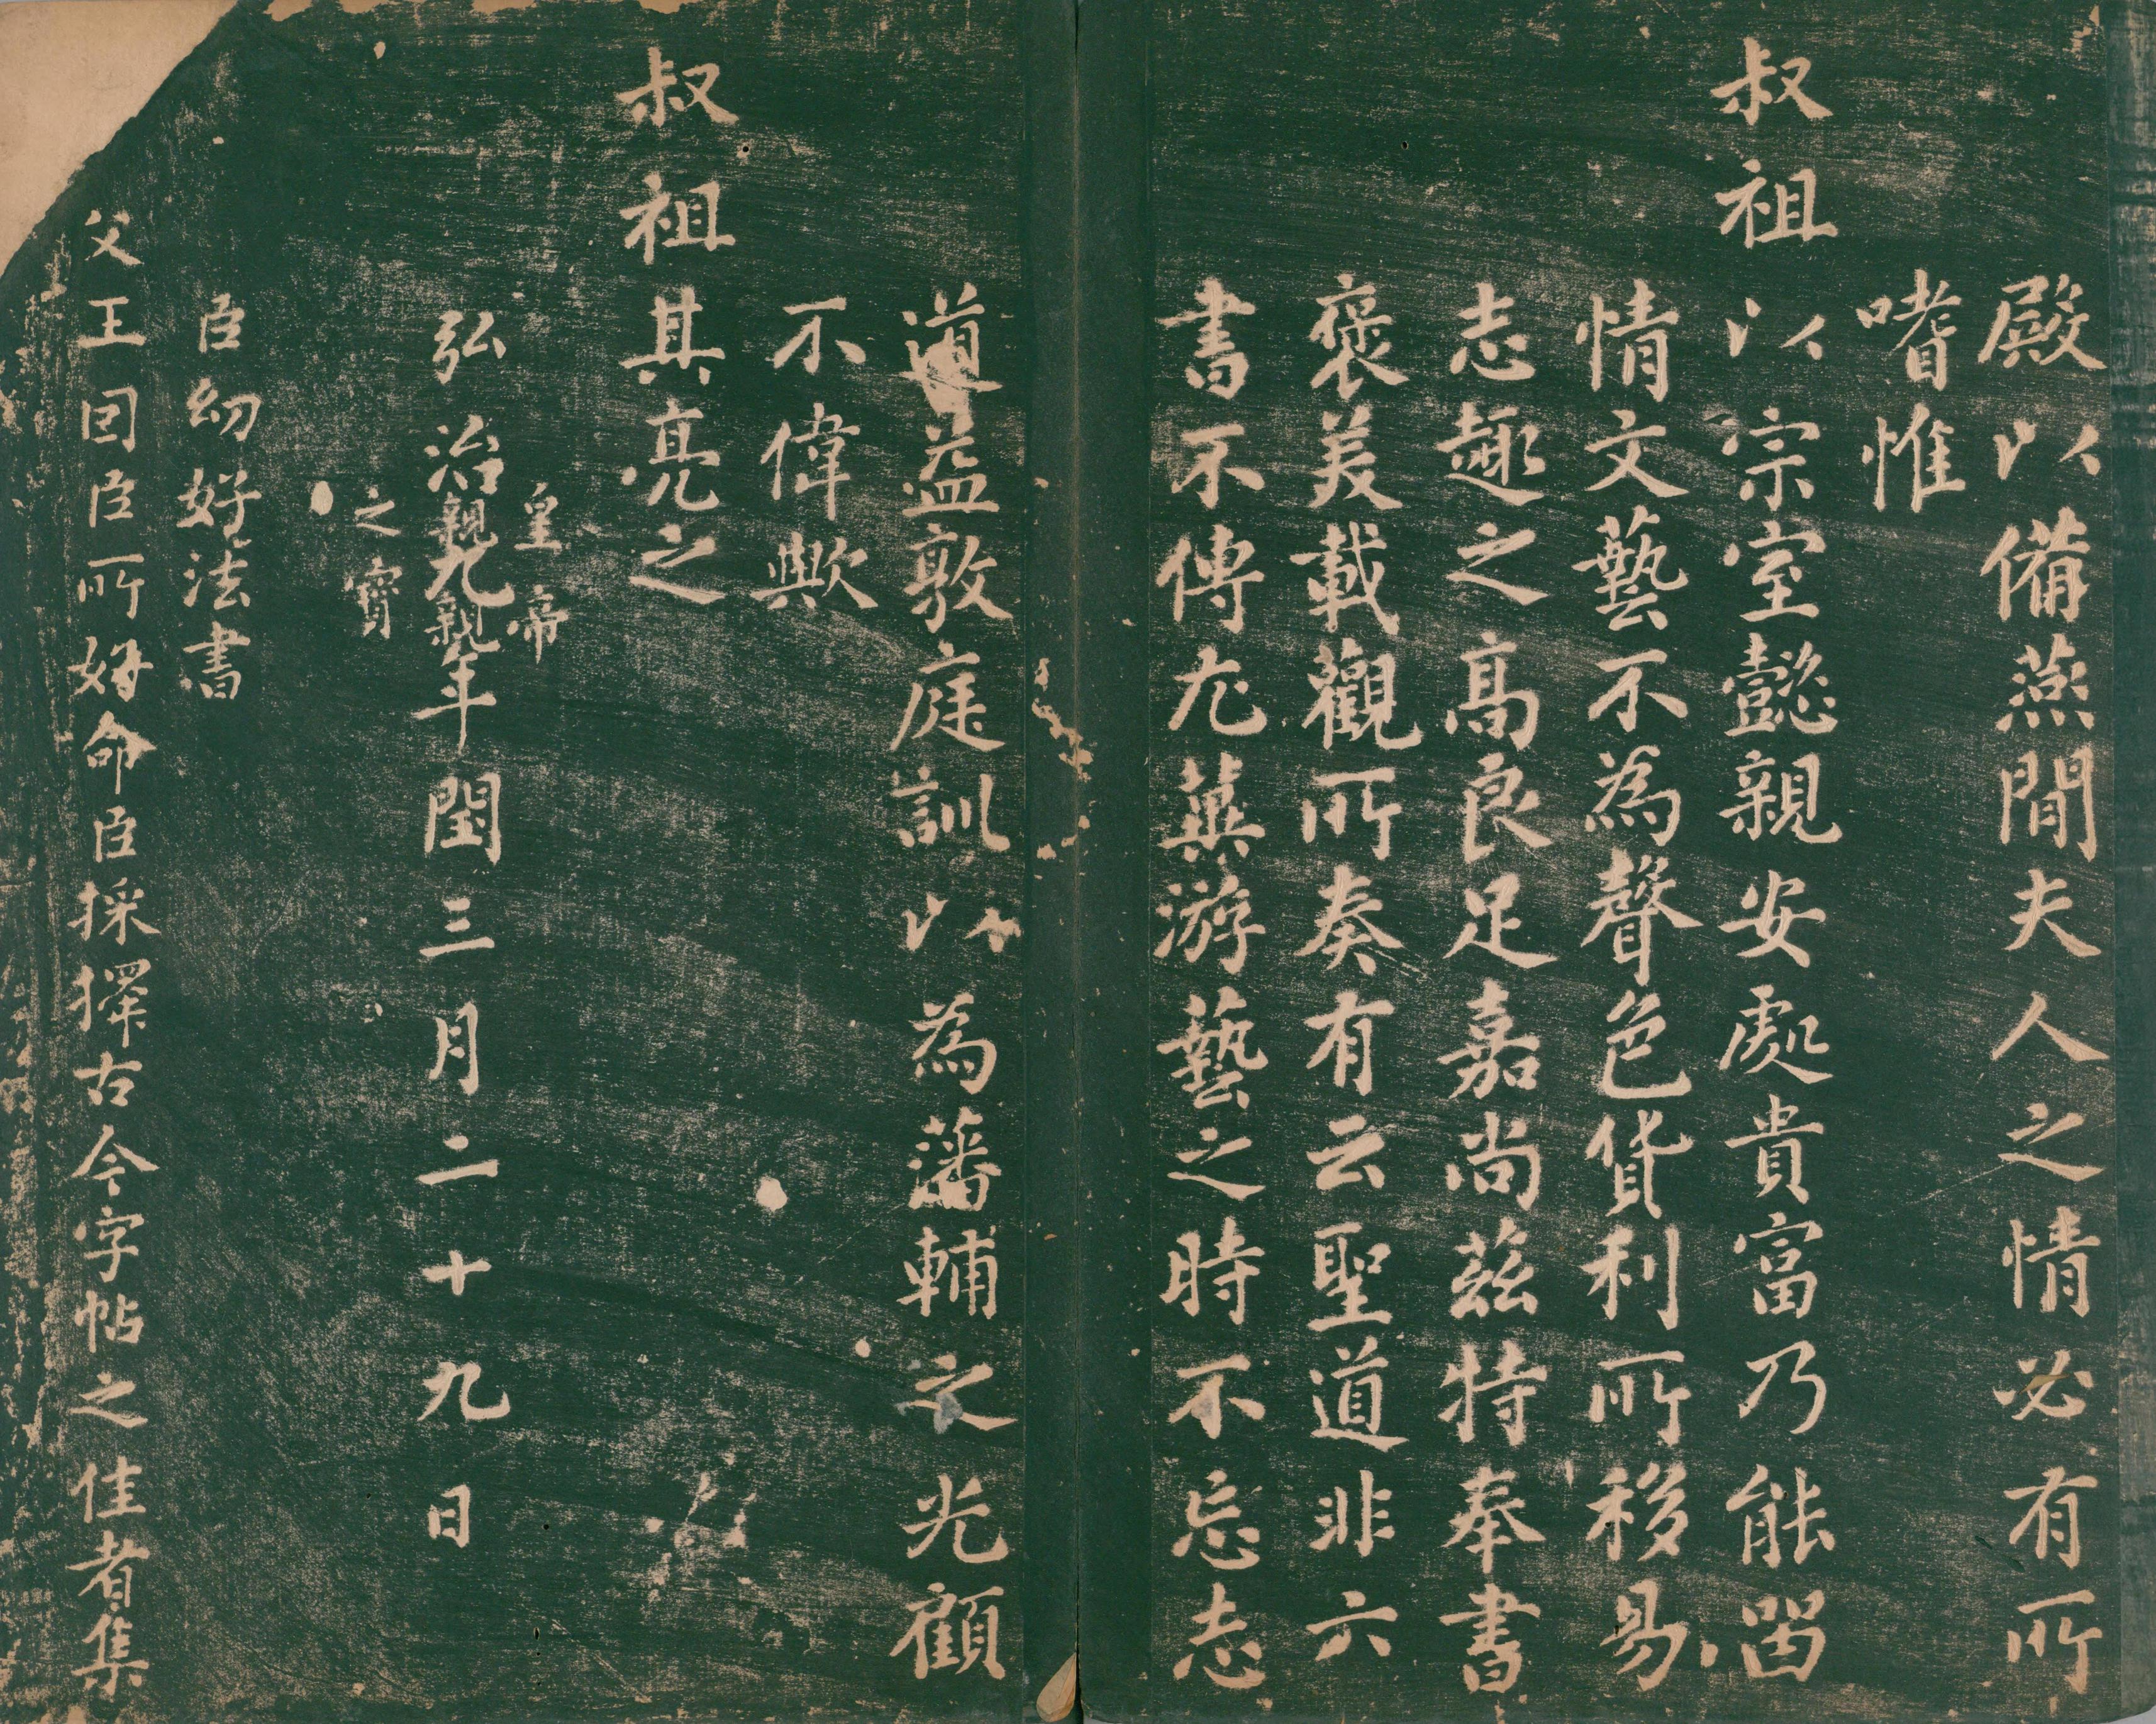 殿以備燕閒夫人之情必有所
嗜惟
叔祖以宗室懿親安處貴富乃能留
情文藝不為聲色貨利所移易
志趣之高良足嘉尚茲特奉書
褒美載觀所奏有云聖道非六
書不傳尤冀游藝之時不忘志
道益敦庭訓以為藩輔之光顧
不偉歟
叔祖其亮之
弘治九年閏三月二十九日
皇帝
親親
之寶
臣幼好法書
父王因臣所好命臣採擇古今字帖之佳者集